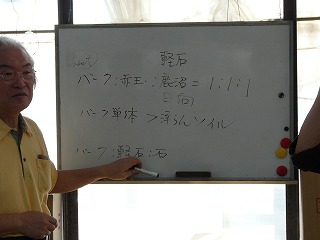 軽石
バーク:赤玉:鹿沼 = 1:1:1
日向
バーク単体 > 浮らんソイル
バーク:軽石:石